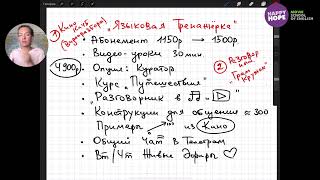 ① Кино
" Языковая Тренажёрка "
• Абонемент 1150р → 1500р
• Видео-уроки 30 мин
4900р
• Опция: Куратор
Курс "Путешествия"
"Разговорник в
② Разговор
• Конструкции для общения ≈ 300
Примеры из Кино
• Общий Чат в Телеграм
• Вт/Чт Живые Эфиры
HAPPY
HOPE
MOVIE
SCHOOL
OF ENGLISH